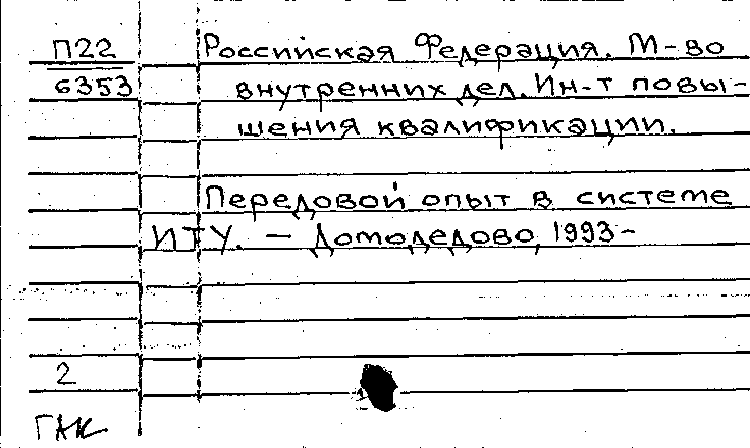 П22
6353
Российская Федерация. М-во
внутренних дел. Ин-т повы-
шения квалификации.
Передовой опыт в системе
ИТУ. – Домодедово, 1993-
2
ГАК